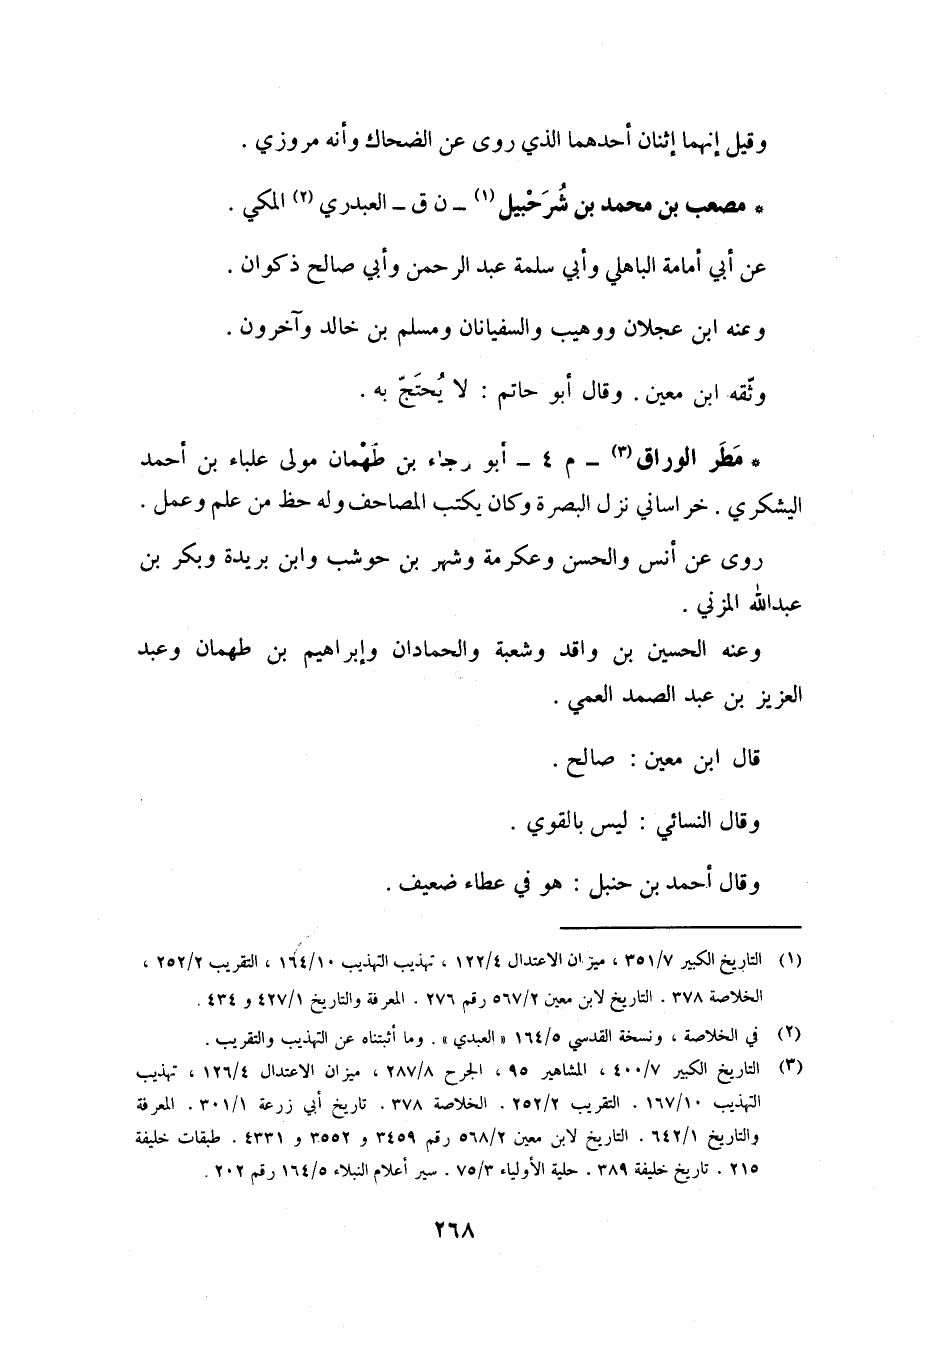 وقيل إنهما إثنان أحدهما الذي روى عن الضحاك وأنه مروزي .
* مصعب بن محمد بن شُرَحْبيل (١) ــ ن ق ــ العبدري (٢) المكي .
عن أبي أمامة الباهلي وأبي سلمة عبد الرحمن وأبي صالح ذكوان .
وعنه ابن عجلان ووهيب والسفيانان ومسلم بن خالد وآخرون .
وثّقه ابن معين . وقال أبو حاتم : لا يُحتَجّ به .
* مَطَر الوراق (٣) ــ م ٤ ــ أبو رجاء بن طَهْمان مولى علباء بن أحمد
اليشكري . خراساني نزل البصرة وكان يكتب المصاحف وله حظ من علم وعمل .
روى عن أنس والحسن وعكرمة وشهر بن حوشب وابن بريدة وبكر بن
عبدالله المزني .
وعنه الحسين بن واقد وشعبة والحمادان وإبراهيم بن طهمان وعبد
العزيز بن عبد الصمد العمي .
قال ابن معين : صالح .
وقال النسائي : ليس بالقوي .
وقال أحمد بن حنبل : هو في عطاء ضعيف .
(١) التاريخ الكبير ٣٥١/٧ ، ميزان الاعتدال ١٢٢/٤ ، تهذيب التهذيب ١٦٤/١٠ ، التقريب ٢٥٢/٢ ،
الخلاصة ٣٧٨ . التاريخ لابن معين ٥٦٧/٢ رقم ٢٧٦ . المعرفة والتاريخ ٤٢٧/١ و ٤٣٤ .
(٢) في الخلاصة ، ونسخة القدسي ١٦٤/٥ « العبدي » . وما أثبتناه عن التهذيب والتقريب .
(٣) التاريخ الكبير ٤٠٠/٧ ، المشاهير ٩٥ ، الجرح ٢٨٧/٨ ، ميزان الاعتدال ١٢٦/٤ ، تهذيب
التهذيب ١٦٧/١٠ . التقريب ٢٥٢/٢ . الخلاصة ٣٧٨ . تاريخ أبي زرعة ٣٠١/١ . المعرفة
والتاريخ ٦٤٢/١ . التاريخ لابن معين ٥٦٨/٢ رقم ٣٤٥٩ و ٣٥٥٢ و ٤٣٣١ . طبقات خليفة
٢١٥ . تاريخ خليفة ٣٨٩ . حلية الأولياء ٧٥/٣ . سير أعلام النبلاء ١٦٤/٥ رقم ٢٠٢ .
٢٦٨